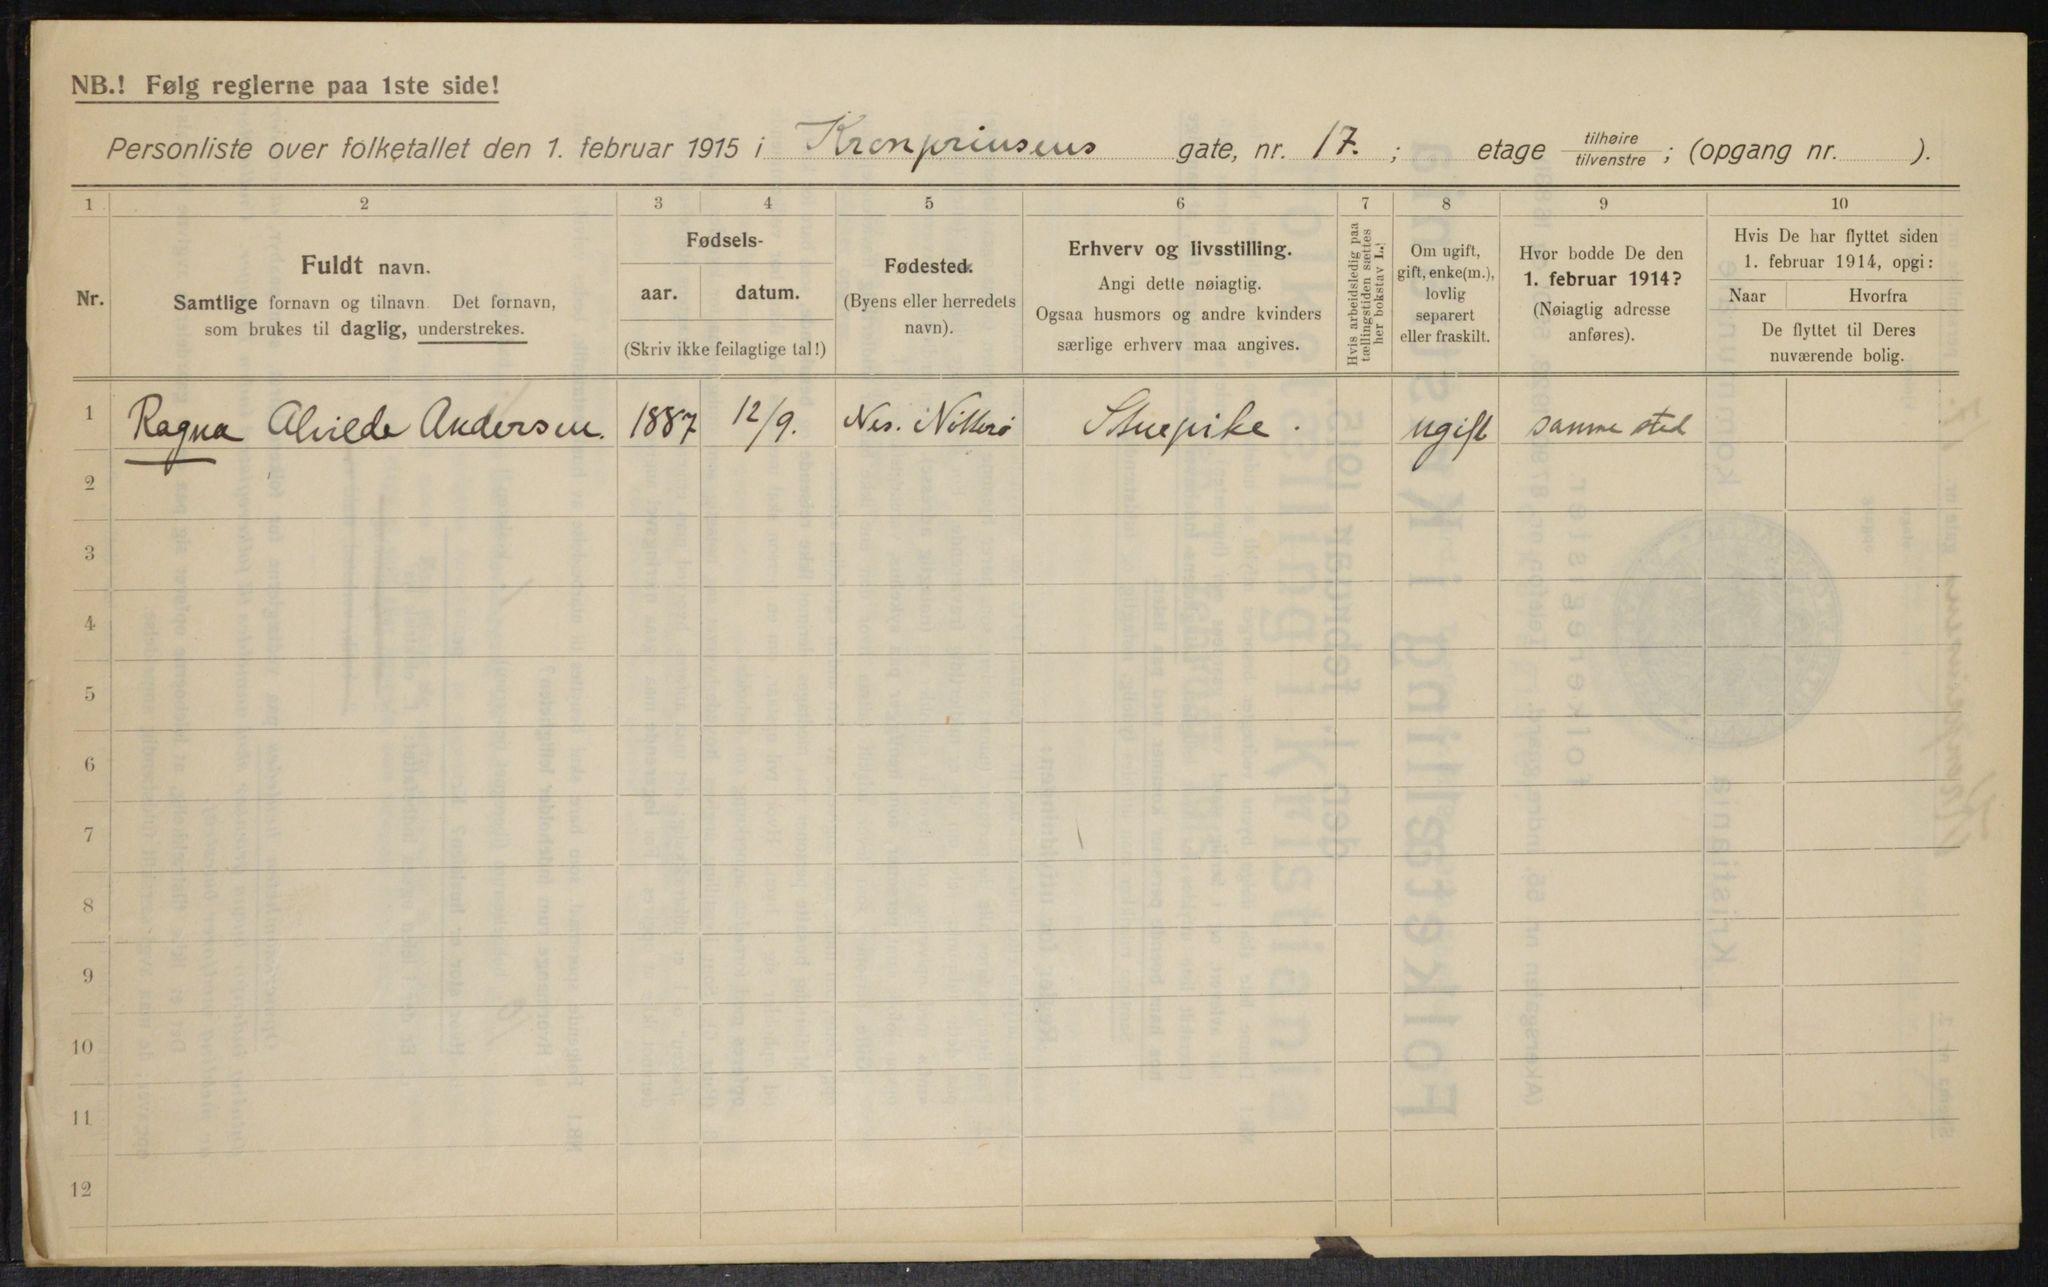 NB.! Følg reglerne paa 1ste side!
Personliste over folketallet den 1. februar 1915 i Kronprinsens gate, nr. 17. ; etage tilhøire tilvenstre ; (opgang nr. ).
1 2 3 4 5 6 7 8 9 10
Nr.
Fuldt navn.
Samtlige fornavn og tilnavn. Det fornavn,
som brukes til daglig, understrekes.
Fødsels-
aar. datum.
(Skriv ikke feilagtige tal!)
Fødested.
(Byens eller herredets
navn).
Erhverv og livsstilling.
Angi dette nøiagtig.
Ogsaa husmors og andre kvinders
særlige erhverv maa angives.
Hvis arbeidsledig paa
tællingstiden sættes
her bokstav L.
Om ugift,
gift, enke(m.),
lovlig
separert
eller fraskilt.
Hvor bodde De den
1. februar 1914?
(Nøiagtig adresse
anføres).
Hvis De har flyttet siden
1. februar 1914, opgi:
Naar Hvorfra
De flyttet til Deres
nuværende bolig.
1 Ragna Alvilde Andersen. 1887 12/9. Nes. Nøtterø Stuepike. ugift samme sted
2
3
4
5
6
7
8
9
10
11
12